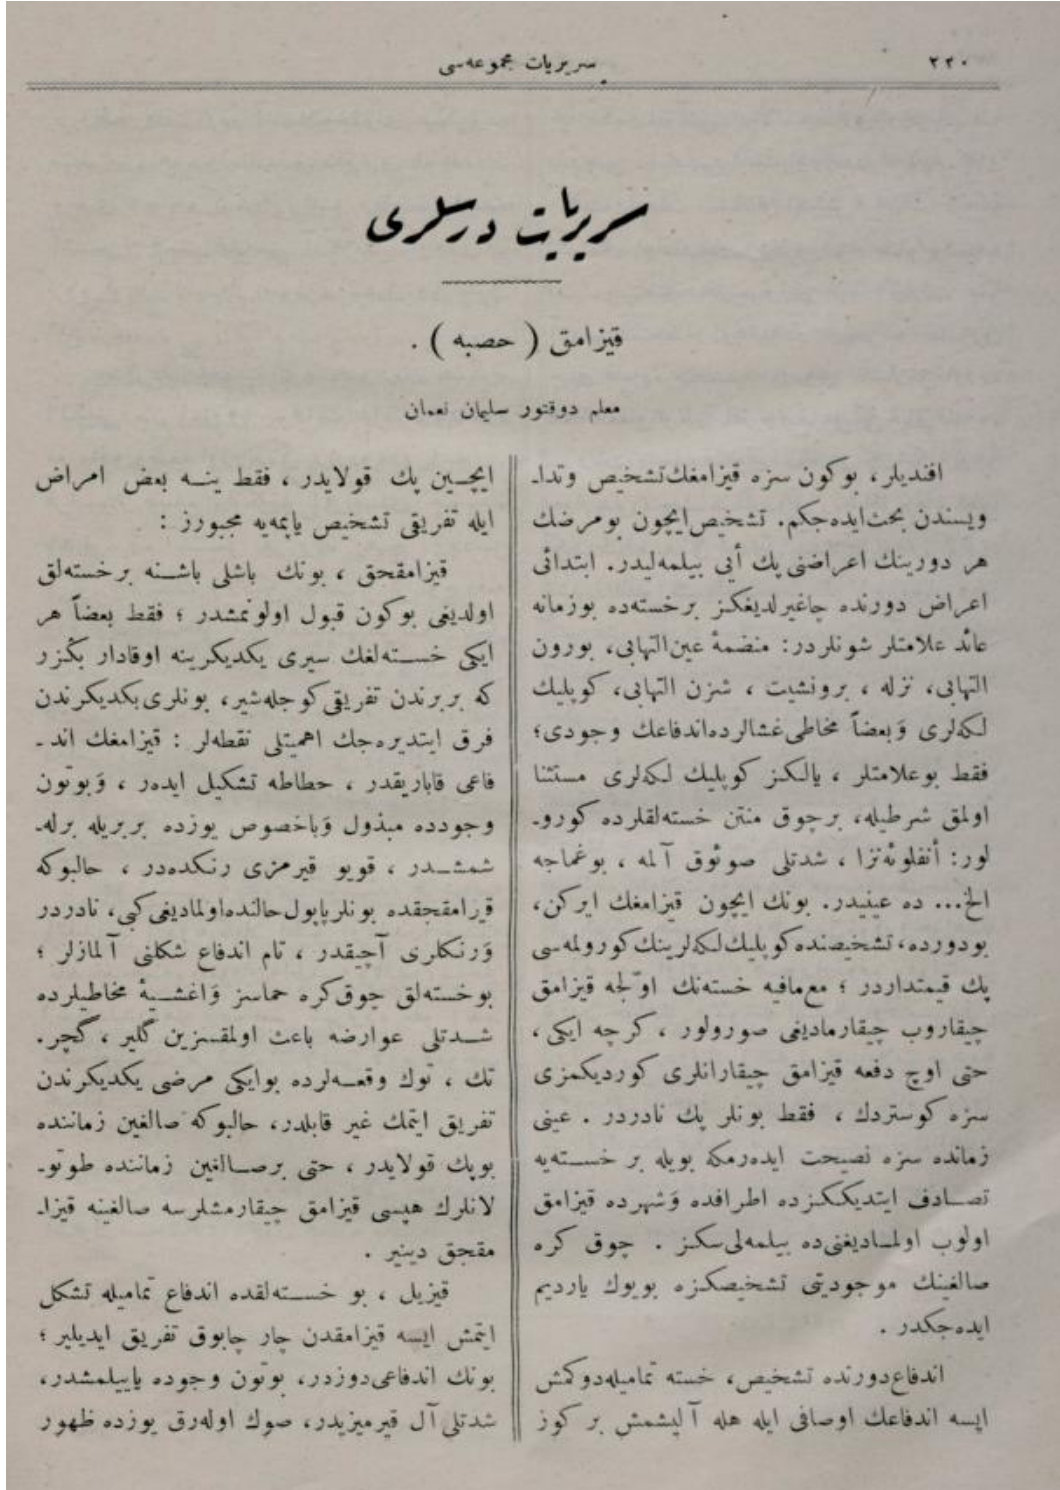 ٢٢٠
سريريات مجموعه‌سی
سريريات درسلری
قيزامق ( حصبه ) .
معلم دوقتور سليمان نعمان
افنديلر ، بوكون سزه قيزامغك تشخيص وتدا۔
ويسندن بحث ايده‌جكم. تشخيص ايچون بومرضك
هر دورينك اعراضنی پك أیی بيلمه‌ليدر. ابتدائی
اعراض دورنده چاغيرلديغكز برخسته‌ده بوزمانه
عائد علامتلر شونلردر: منضمۀ عين التهابی، بورون
التهابی، نزله ، برونشيت ، شزن التهابی، كوپليك
لكه‌لری وَبعضاً مخاطی غشالرده اندفاعك وجودی؛
فقط بوعلامتلر ، يالكز كوپليك لكه‌لری مستثنا
اولمق شرطيله، برچوق منتن خسته‌لقلرده كورو۔
لور: أنفلوئه‌نزا ، شدتلی صوئوق آلمه ، بوغماجه
الخ... ده عينيدر. بونك ايچون قيزامغك ايركن،
بودورده، تشخيصنده كوپليك لكه‌لرينك كورولمه‌سی
پك قيمتداردر ؛ مع‌مافيه خسته‌نك اوّلجه قيزامق
چيقاروب چيقارماديغی صورولور ، كرچه ايكی ،
حتی اوچ دفعه قيزامق چيقارانلری كورديكمزی
سزه كوستردك ، فقط بونلر پك نادردر . عينی
زمانده سزه نصيحت ايده‌رمكه بويله بر خسته‌يه
تصادف ايتديككزده اطرافده وَشهرده قيزامق
اولوب اولماديغنی‌ده بيلمه‌لی‌سكز . چوق كره
صالغينك موجوديتی تشخيصكزه بويوك يارديم
ايده‌جكدر .
اندفاع دورنده تشخيص، خسته تماميله دوكمش
ايسه اندفاعك اوصافی ايله هله آليشمش بر كوز
ايچين پك قولايدر ، فقط ينه بعض امراض
ايله تفريقی تشخيص ياپمه‌يه مجبورز :
قيزامقجق ، بونك باشلی باشنه برخسته‌لق
اولديغی بوكون قبول اولونمشدر ؛ فقط بعضاً هر
ايكی خسته‌لغك سيری يكديكرينه اوقادار بكزر
كه بربرندن تفريقی كوجله‌شير، بونلری يكديكرندن
فرق ايتديره‌جك اهميتلی نقطه‌لر : قيزامغك اند۔
فاعی قاباريقدر ، حطاطه تشكيل ايده‌ر ، وَبوتون
وجودده مبذول وَباخصوص يوزده بربريله برله۔
شمشدر ، قويو قيرمزی رنكده‌در ، حالبوكه
قيزامقجقده بونلر پاپول حالنده اولماديغی كبی، نادردر
وَرنكلری آچيقدر ، تام اندفاع شكلنی آلمازلر ؛
بوخسته‌لق چوق كره حماسز وَاغشيۀ مخاطيلرده
شدتلی عوارضه باعث اولمقسزين گلير ، گچر.
تك ، توك وقعه‌لرده بوايكی مرضی يكديكرندن
تفريق ايتمك غير قابلدر، حالبوكه صالغين زماننده
بوپك قولايدر ، حتی برصالغين زماننده طوتو۔
لانلرك هپسی قيزامق چيقارمشلرسه صالغينه قيزا۔
مقجق دينير .
قيزيل ، بو خسته‌لقده اندفاع تماميله تشكل
ايتمش ايسه قيزامقدن چار چابوق تفريق ايديلير ؛
بونك اندفاعی دوزدر، بوتون وجوده ياييلمشدر،
شدتلی آل قيرميزيدر، صوك اوله‌رق يوزده ظهور